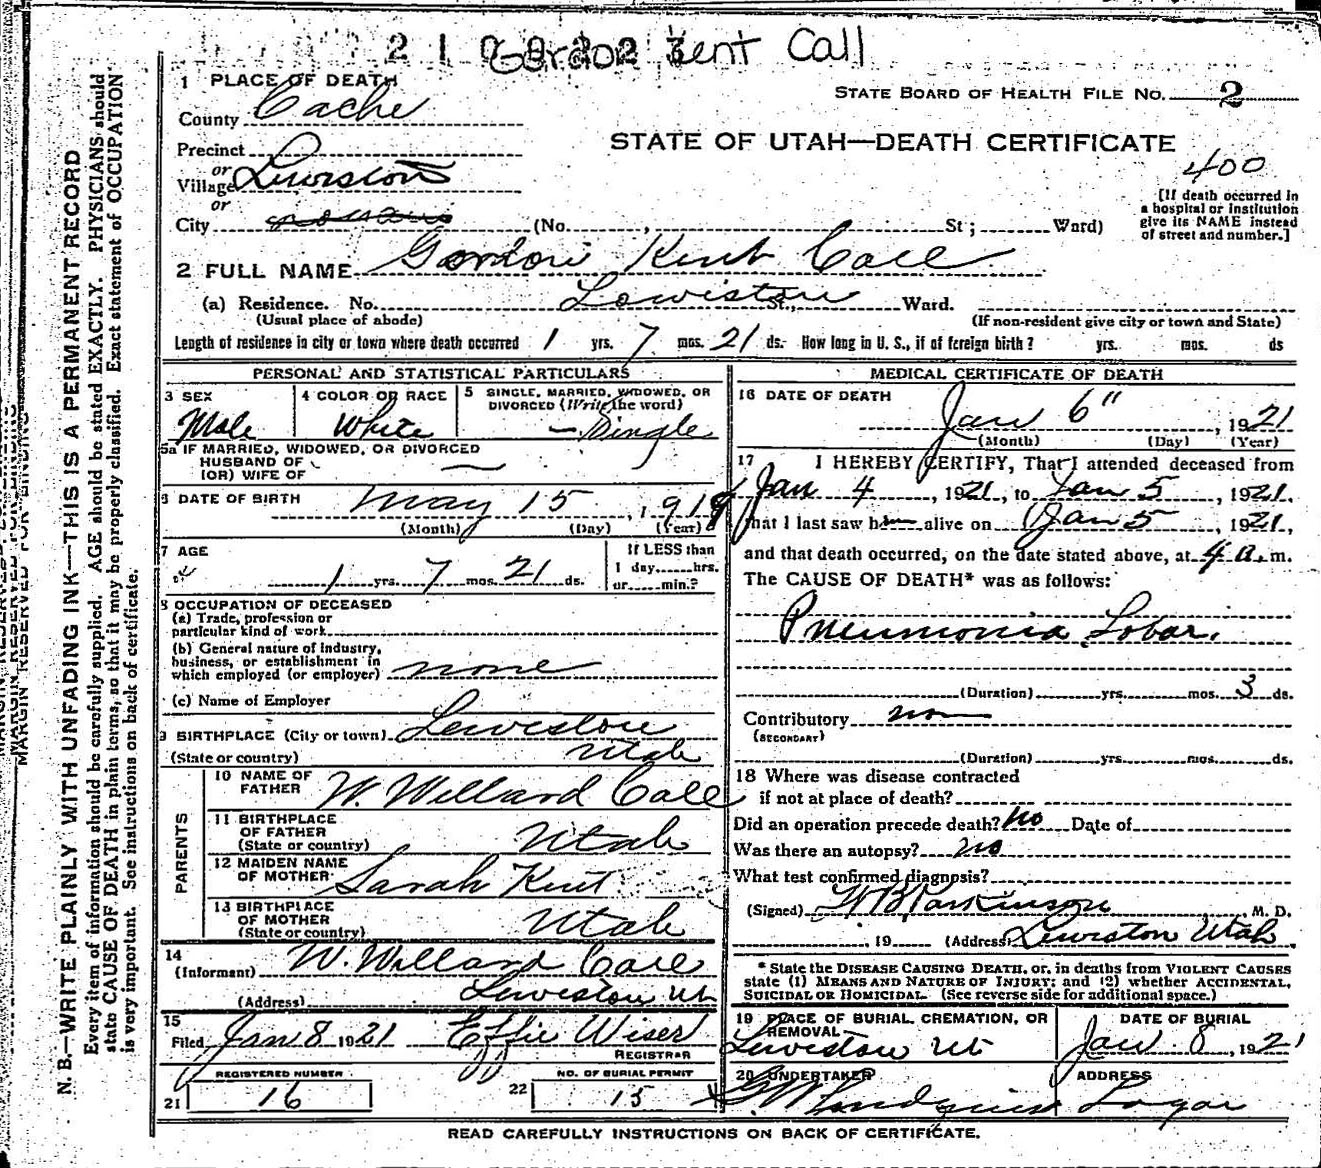 Gordon Kent Call
1 PLACE OF DEATH
STATE BOARD OF HEALTH FILE NO. 2
County Cache
STATE OF UTAH—DEATH CERTIFICATE
Precinct
400
or
Village Lewiston
or
City
(No. , St; Ward)
[If death occurred in
a hospital or institution
give its NAME instead
of street and number.]
2 FULL NAME Gordon Kent Call
(a) Residence. No. Lewiston St., Ward.
(Usual place of abode) (If non-resident give city or town and State)
Length of residence in city or town where death occurred 1 yrs. 7 mos. 21 ds. How long in U. S., if of fereign birth? yrs. mos. ds
PERSONAL AND STATISTICAL PARTICULARS
3 SEX
Male
4 COLOR OR RACE
White
5 SINGLE, MARRIED, WIDOWED, OR
DIVORCED (Write the word)
Single
5a IF MARRIED, WIDOWED, OR DIVORCED
HUSBAND OF
(OR) WIFE OF
6 DATE OF BIRTH May 15, 1919
(Month) (Day) (Year)
7 AGE
1 yrs. 7 mos. 21 ds.
If LESS than
1 day hrs.
or min.?
8 OCCUPATION OF DECEASED
(a) Trade, profession or
particular kind of work
(b) General nature of Industry,
business, or establishment in
which employed (or employer) none
(c) Name of Employer
9 BIRTHPLACE (City or town) Lewiston
(State or country) Utah
PARENTS
10 NAME OF
FATHER W. Willard Call
11 BIRTHPLACE
OF FATHER
(State or country) Utah
12 MAIDEN NAME
OF MOTHER Sarah Kent
13 BIRTHPLACE
OF MOTHER
(State or country) Utah
14
(Informant) W. Willard Call
(Address) Lewiston Ut
15
Filed Jan 8 1921 Effie Wiser
REGISTRAR
REGISTERED NUMBER
21 16
NO. OF BURIAL PERMIT
22 15
MEDICAL CERTIFICATE OF DEATH
16 DATE OF DEATH
Jan 6", 1921
(Month) (Day) (Year)
17 I HEREBY CERTIFY, That I attended deceased from
Jan 4, 1921, to Jan 5, 1921.
that I last saw him alive on Jan 5, 1921,
and that death occurred, on the date stated above, at 4 a.m.
The CAUSE OF DEATH* was as follows:
Pneumonia Lobar.
(Duration) yrs. mos. 3 ds.
Contributory
(SECONDARY)
(Duration) yrs. mos. ds.
18 Where was disease contracted
if not at place of death?
Did an operation precede death? No Date of
Was there an autopsy? no
What test confirmed diagnosis?
(Signed) W B Parkinson M. D.
, 19 (Address) Lewiston Utah
* State the DISEASE CAUSING DEATH, or, in deaths from VIOLENT CAUSES
state (1) MEANS AND NATURE OF INJURY; and (2) whether ACCIDENTAL,
SUICIDAL OR HOMICIDAL. (See reverse side for additional space.)
19 PLACE OF BURIAL, CREMATION, OR
REMOVAL
Lewiston Ut
DATE OF BURIAL
Jan 8, 1921
20 UNDERTAKER
ADDRESS
Logan
READ CAREFULLY INSTRUCTIONS ON BACK OF CERTIFICATE.
MARGIN RESERVED FOR BINDING
N. B.—WRITE PLAINLY WITH UNFADING INK—THIS IS A PERMANENT RECORD
Every item of information should be carefully supplied. AGE should be stated EXACTLY. PHYSICIANS should
state CAUSE OF DEATH in plain terms, so that it may be properly classified. Exact statement of OCCUPATION
is very important. See instructions on back of certificate.